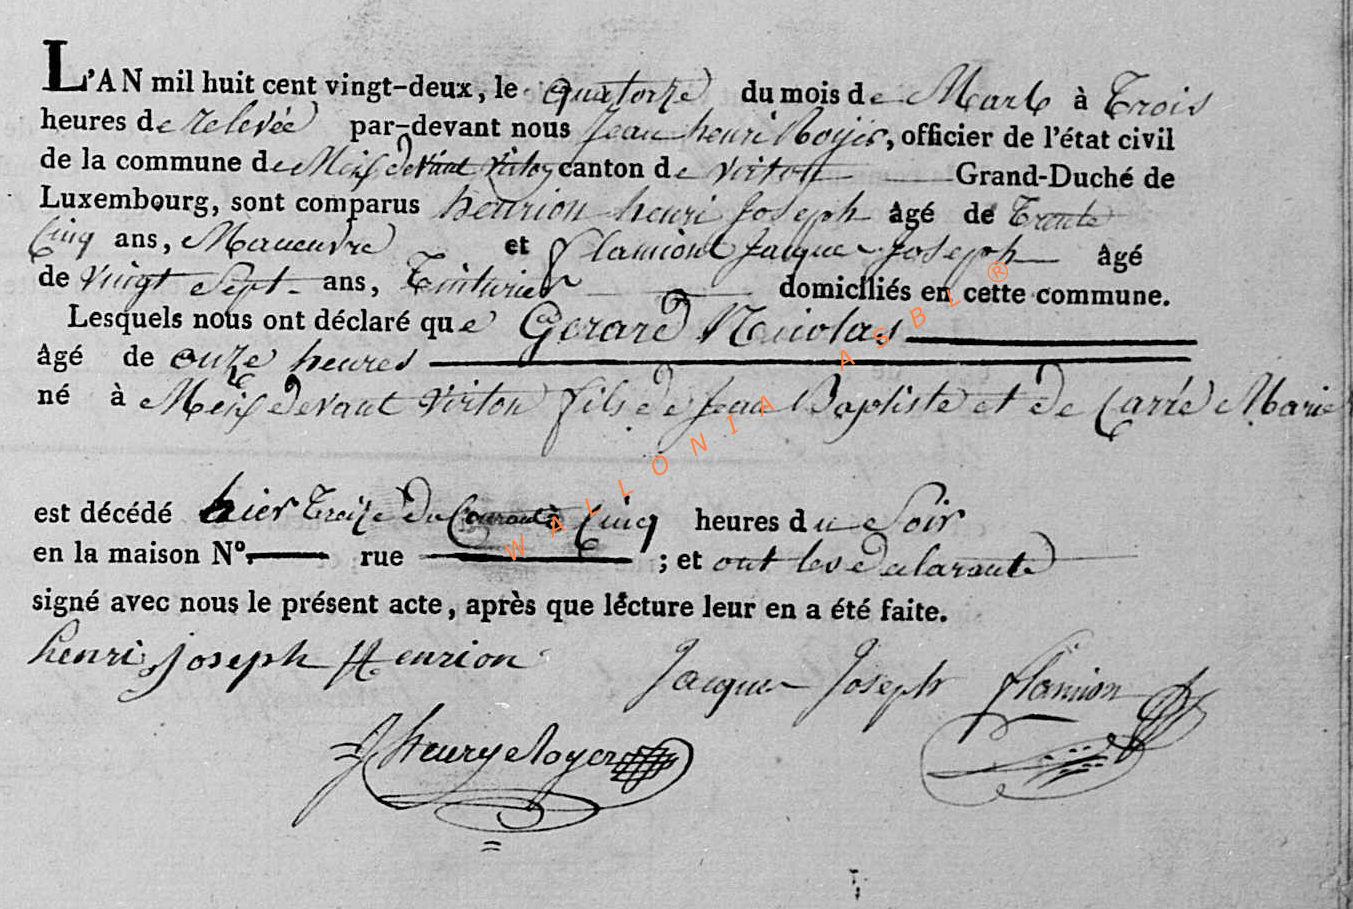 L'AN mil huit cent vingt-deux, le quatorze du mois de Mars à Trois
heures de relevée par-devant nous Jean henri Royer, officier de l'état civil
de la commune de Meix devant virton canton de virton Grand-Duché de
Luxembourg, sont comparus henrion henri Joseph âgé de Trente
Cinq ans, Maneuvre et flamiont Jacque Joseph âgé
de vingt Sept ans, Tinturier domiciliés en cette commune.
Lesquels nous ont déclaré que Gerard Nicolas
âgé de onze heures
né à Meix devant Virton fils de Jean Baptiste et de Carré Marie
est décédé hier Treize du Courant à Cinq heures du Soir
en la maison N°. rue ; et ont les declarants
signé avec nous le présent acte, après que lecture leur en a été faite.
henri joseph Henrion Jacque Joseph flamion
J henry Royer
WALLONIA ASBL ®